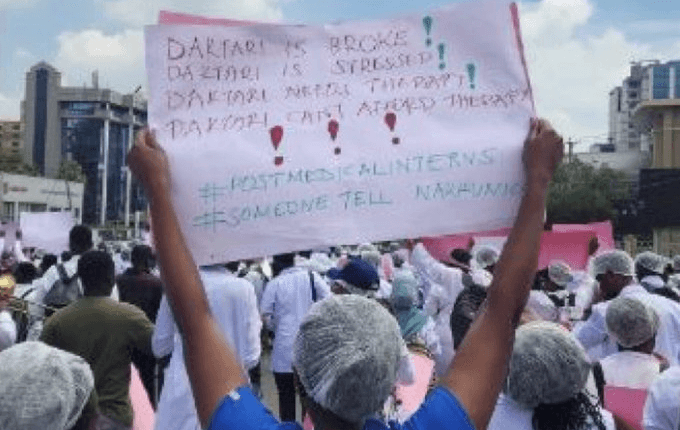 DAKTARI IS BROKE!
DAKTARI IS STRESSED!
DAKTARI NEED THERAPY!
DAKTARI CANT AFFORD THERAPY
! ! !
#POSTMEDICALINTERNS
#SOMEONE TELL NAKHUMICHA